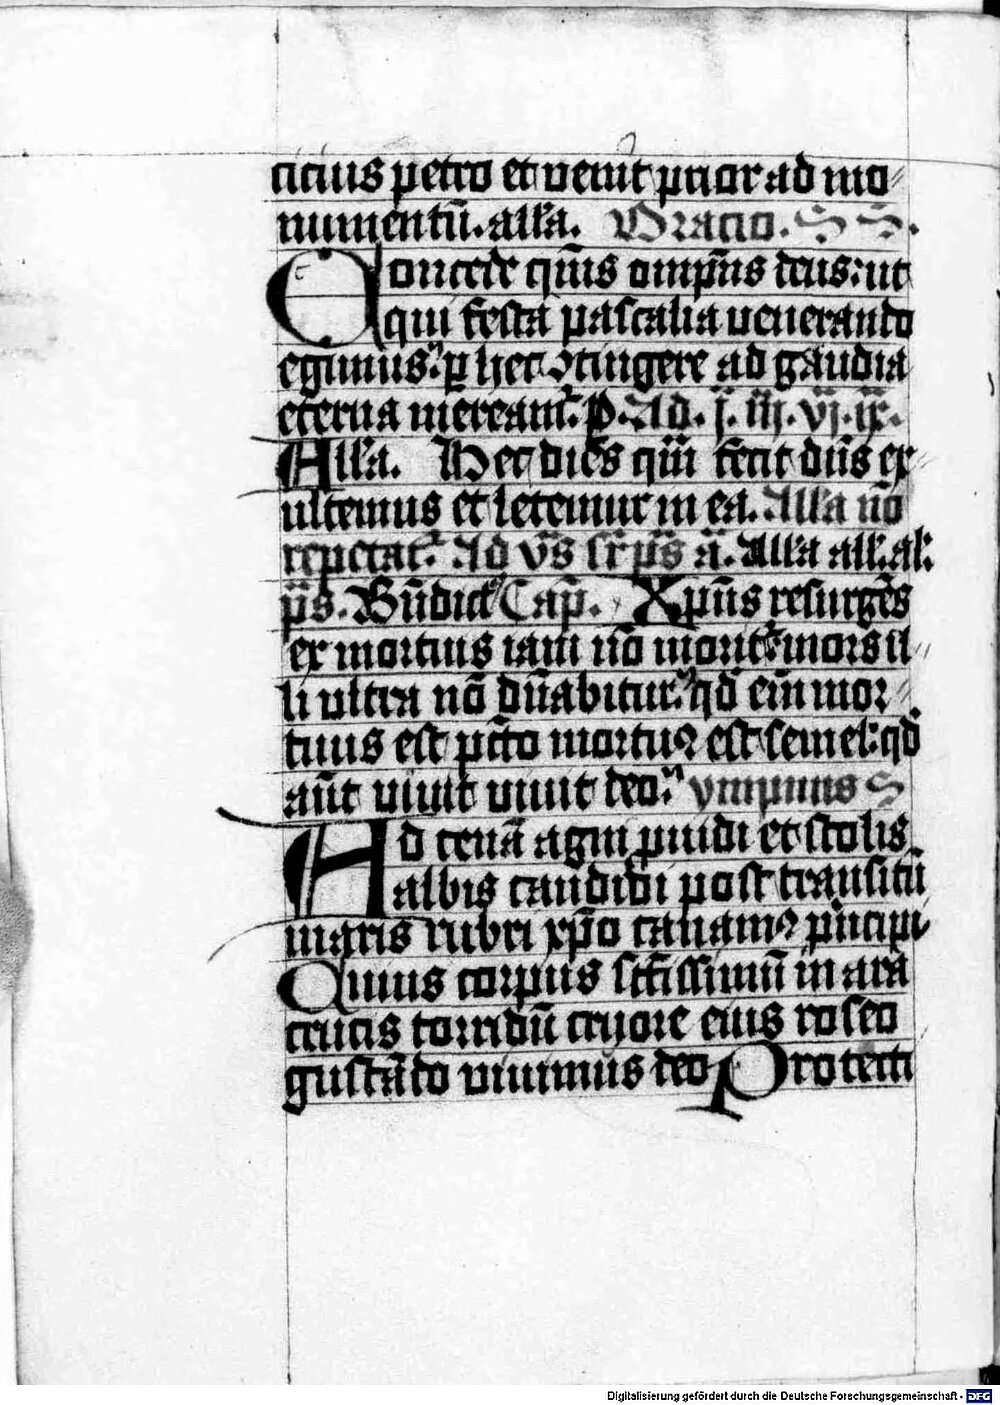 citius petro et venit prior ad mo-
numentū. all'a. Oracio. S S.
Concede q̄m̄s omp̄ns deus: ut
qui festa pascalia venerando
egimus: p hec ꝯtingere ad gaudia
eterna meream̄. P. Ad. j. iij. vj. ix.
All'a. Hec dies quā fecit dn̄s ex-
ultemus et letemur in ea. All'a nō
repetat᷑. Ad v̄s sr̄ p̄s ā. All'a all. al'.
p̄s. Bn̄dict᷑ Cap̄. Xp̄us resurgēs
ex mortuis iam nō morit᷑: mors il-
li ultra nō dn̄abitur. qd̄ em̄ mor-
tuus est pc̄to mortuꝰ est semel: qd̄
aūt vivit vivit deo. ympnus S
Ad cenā agni p̄uidi et stolis
albis candidi post transitū
maris rubri xp̄o canamꝰ p̄ncipi
Cuius corpus sc̄tissimū in ara
crucis torridū cruore eius roseo
gustādo vivimus deo Protecti
Digitalisierung gefördert durch die Deutsche Forschungsgemeinschaft - DFG